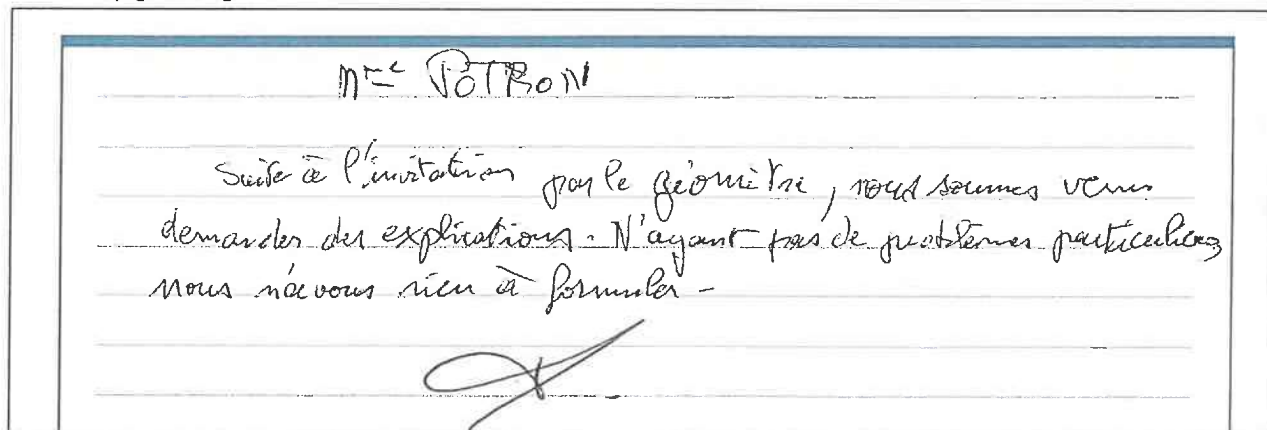 Mme POTRON
Suite à l'invitation par le géomètre, nous sommes venus
demander des explications. N'ayant pas de problèmes particuliers
nous n'avons rien à formuler -